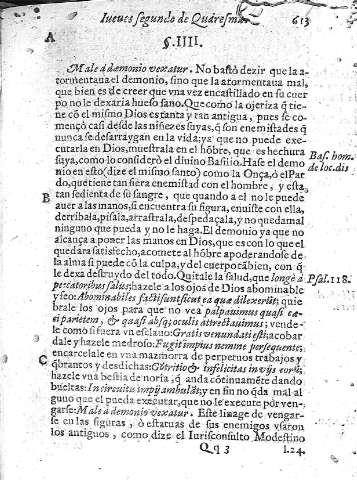 Iueues segundo de Quaresma. 613
A
§.IIII.
Male à dæmonio vexatur. No bastò dezir que la a-
tormentaua el demonio, sino que la atormentaua mal,
que bien es de creer que vna vez encastillado en su cuer
po no le dexaria hueso sano. Que como la ojeriza q̃ tie-
ne cõ el mismo Dios es tanta y tan antigua, pues se co-
mençò casi desde las niñezes suyas, q̃ son enemistades q̃
nunca se desarraygan en la vida; ya que no puede exe-
cutarla en Dios, muestrala en el hõbre, que es hechura
suya, como lo considerò el diuino Basilio. Hase el demo
Bas. hom.
de loc. dis
nio en esto (dize el mismo santo) como la Onça, ò el Par
do, que tiene tan fiera enemistad con el hombre, y està
B
tan sedienta de su sangre, que quando a el no le puede
auer a las manos, si encuentra su figura, enuiste con ella,
derribala, pisala, arrastrala, despedaçala, y no queda mal
ninguno que pueda y no le haga. El demonio ya que no
alcança a poner las manos en Dios, que es con lo que el
quedara satisfecho, acomete al hõbre apoderandose de
la alma si puede cõ la culpa, y del cuerpo tãbien, con q̃
le dexa destruydo del todo. Quitale la salud, que longè à
Psal. 118.
peccatoribus salus; hazele a los ojos de Dios abominable
y feo: Abominabiles facti sunt sicut ea quæ dilexerũt; quie
brale los ojos para que no vea palpauimus quasi cæ-
ci parietem, & quasi absq; oculis attrectauimus; vende-
le como si fuera vn esclauo: Gratis venundati estis; acobar
dale y hazele medroso: Fugit impius nemine persequente;
encarcelale en vna mazmorra de perpetuos trabajos y
C
q̃brantos y desdichas: Cõtritio & infelicitas in vijs eorũ;
hazele vna bestia de noria, q̃ anda cõtinuamẽte dando
bueltas: In circuitu impij ambulãt; y en fin no q̃da mal al
guno que el pueda executar, que no le execute por ven-
garse: Male à dæmonio vexatur. Este linage de vengar-
se en las figuras, ò estatuas de sus enemigos vsaron
los antiguos, como dize el Iurisconsulto Modestino
Qq 3
l. 24.